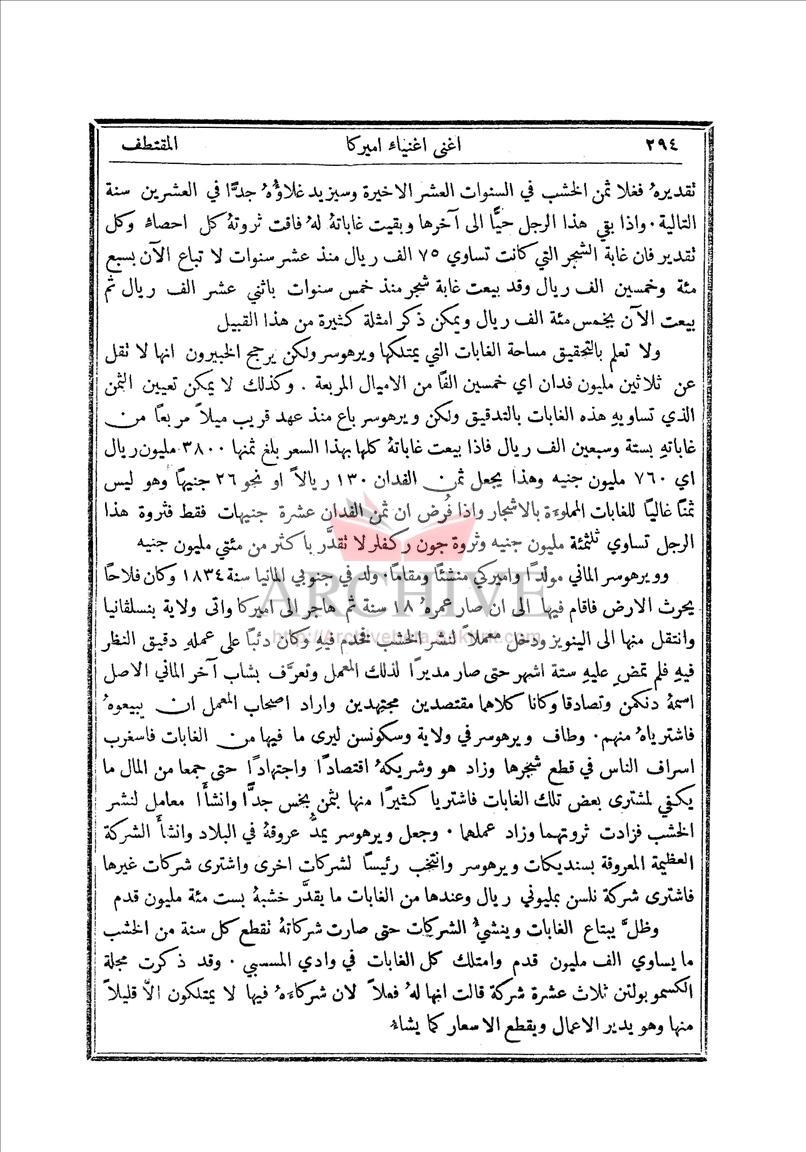 ٢٩٤
اغنى اغنياء اميركا
المقتطف
تقديرهُ فغلا ثمن الخشب في السنوات العشر الاخيرة وسيزيد غلاؤُهُ جدًّا في العشرين سنة
التالية. واذا بقي هذا الرجل حيًّا الى آخرها وبقيت غاباتهُ لهُ فاقت ثروتهُ كل احصاءٍ وكل
تقدير فان غابة الشجر التي كانت تساوي ٧٥ الف ريال منذ عشر سنوات لا تباع الآن بسبع
مئة وخمسين الف ريال وقد بيعت غابة شجر منذ خمس سنوات باثني عشر الف ريال ثم
بيعت الآن بخمس مئة الف ريال ويمكن ذكر امثلة كثيرة من هذا القبيل
ولا تعلم بالتحقيق مساحة الغابات التي يمتلكها ويرهوسر ولكن يرجح الخبيرون انها لا تقل
عن ثلاثين مليون فدان اي خمسين الفًا من الاميال المربعة . وكذلك لا يمكن تعيين الثمن
الذي تساويهِ هذه الغابات بالتدقيق ولكن ويرهوسر باع منذ عهد قريب ميلاً مربعًا من
غاباتهِ بستة وسبعين الف ريال فاذا بيعت غاباتهُ كلها بهذا السعر بلغ ثمنها ٣٨٠٠ مليون ريال
اي ٧٦٠ مليون جنيه وهذا يجعل ثمن الفدان ١٣٠ ريالاً او نحو ٢٦ جنيهًا وهو ليس
ثمنًا غاليًا للغابات المملوءة بالاشجار واذا فُرض ان ثمن الفدان عشرة جنيهات فقط فثروة هذا
الرجل تساوي ثلثمئة مليون جنيه وثروة جون ركفلر لا تقدَّر باكثر من مئتي مليون جنيه
وويرهوسر الماني مولدًا واميركي منشئًا ومقامًا. ولد في جنوبي المانيا سنة ١٨٣٤ وكان فلاحًا
يحرث الارض فاقام فيها الى ان صار عمرهُ ١٨ سنة ثم هاجر الى اميركا واتى ولاية بنسلفانيا
وانتقل منها الى الينويز ودخل معملاً لنشر الخشب نخدم فيهِ وكان دئبًا على عملهِ دقيق النظر
فيهِ فلم تمض عليهِ ستة اشهر حتى صار مديرًا لذلك المعمل وتعرَّف بشاب آخر الماني الاصل
اسمهُ دنكمن وتصادقا وكانا كلاهما مقتصدين مجتهدين واراد اصحاب المعمل ان يبيعوهُ
فاشترياهُ منهم. وطاف ويرهوسر في ولاية وسكونسن ليرى ما فيها من الغابات فاسغرب
اسراف الناس في قطع شجرها وزاد هو وشريكهُ اقتصادًا واجتهادًا حتى جمعا من المال ما
يكفي لمشترى بعض تلك الغابات فاشتريا كثيرًا منها بثمن بخس جدًّا وانشأَا معامل لنشر
الخشب فزادت ثروتهما وزاد عملهما . وجعل ويرهوسر يمدُّ عروقهُ في البلاد وانشأَ الشركة
العظيمة المعروفة بسنديكات ويرهوسر وانتخب رئيسًا لشركات اخرى واشترى شركات غيرها
فاشترى شركة نلسن بمليوني ريال وعندها من الغابات ما يقدَّر خشبهُ بست مئة مليون قدم
وظلَّ يبتاع الغابات وينشئُ الشركات حتى صارت شركاتهُ تقطع كل سنة من الخشب
ما يساوي الف مليون قدم وامتلك كل الغابات في وادي المسسبي . وقد ذكرت مجلة
الكسموبولتن ثلاث عشرة شركة قالت انها لهُ فعلاً لان شركاءَهُ فيها لا يمتلكون الاَّ قليلاً
منها وهو يدير الاعمال ويقطع الاسعار كما يشاءُ
ARCHIVE